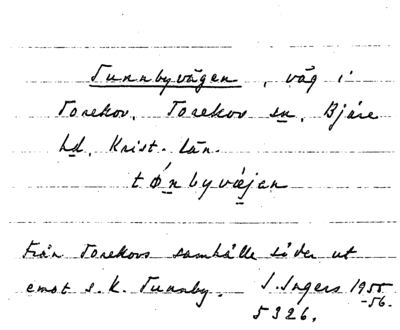 Tunnbyvägen, väg i
Torekov, Torekov sn, Bjäre
hd, Krist. län.
tǿnbyvæjan
Från Torekovs samhälle söder ut
emot s. k. Tunnby. I. Ingers 1955
-56.
5326.